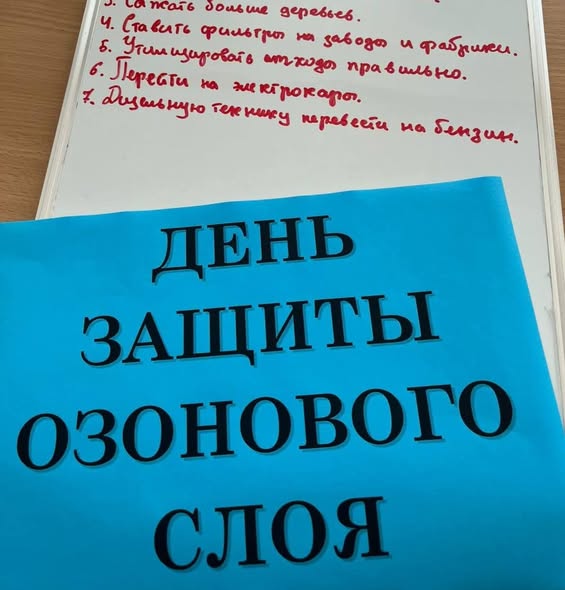 3. Сажать больше деревьев.
4. Ставить фильтры на заводы и фабрики.
5. Утилизировать отходы правильно.
6. Перейти на электрокары.
7. Дизельную технику перевести на бензин.
ДЕНЬ
ЗАЩИТЫ
ОЗОНОВОГО
СЛОЯ